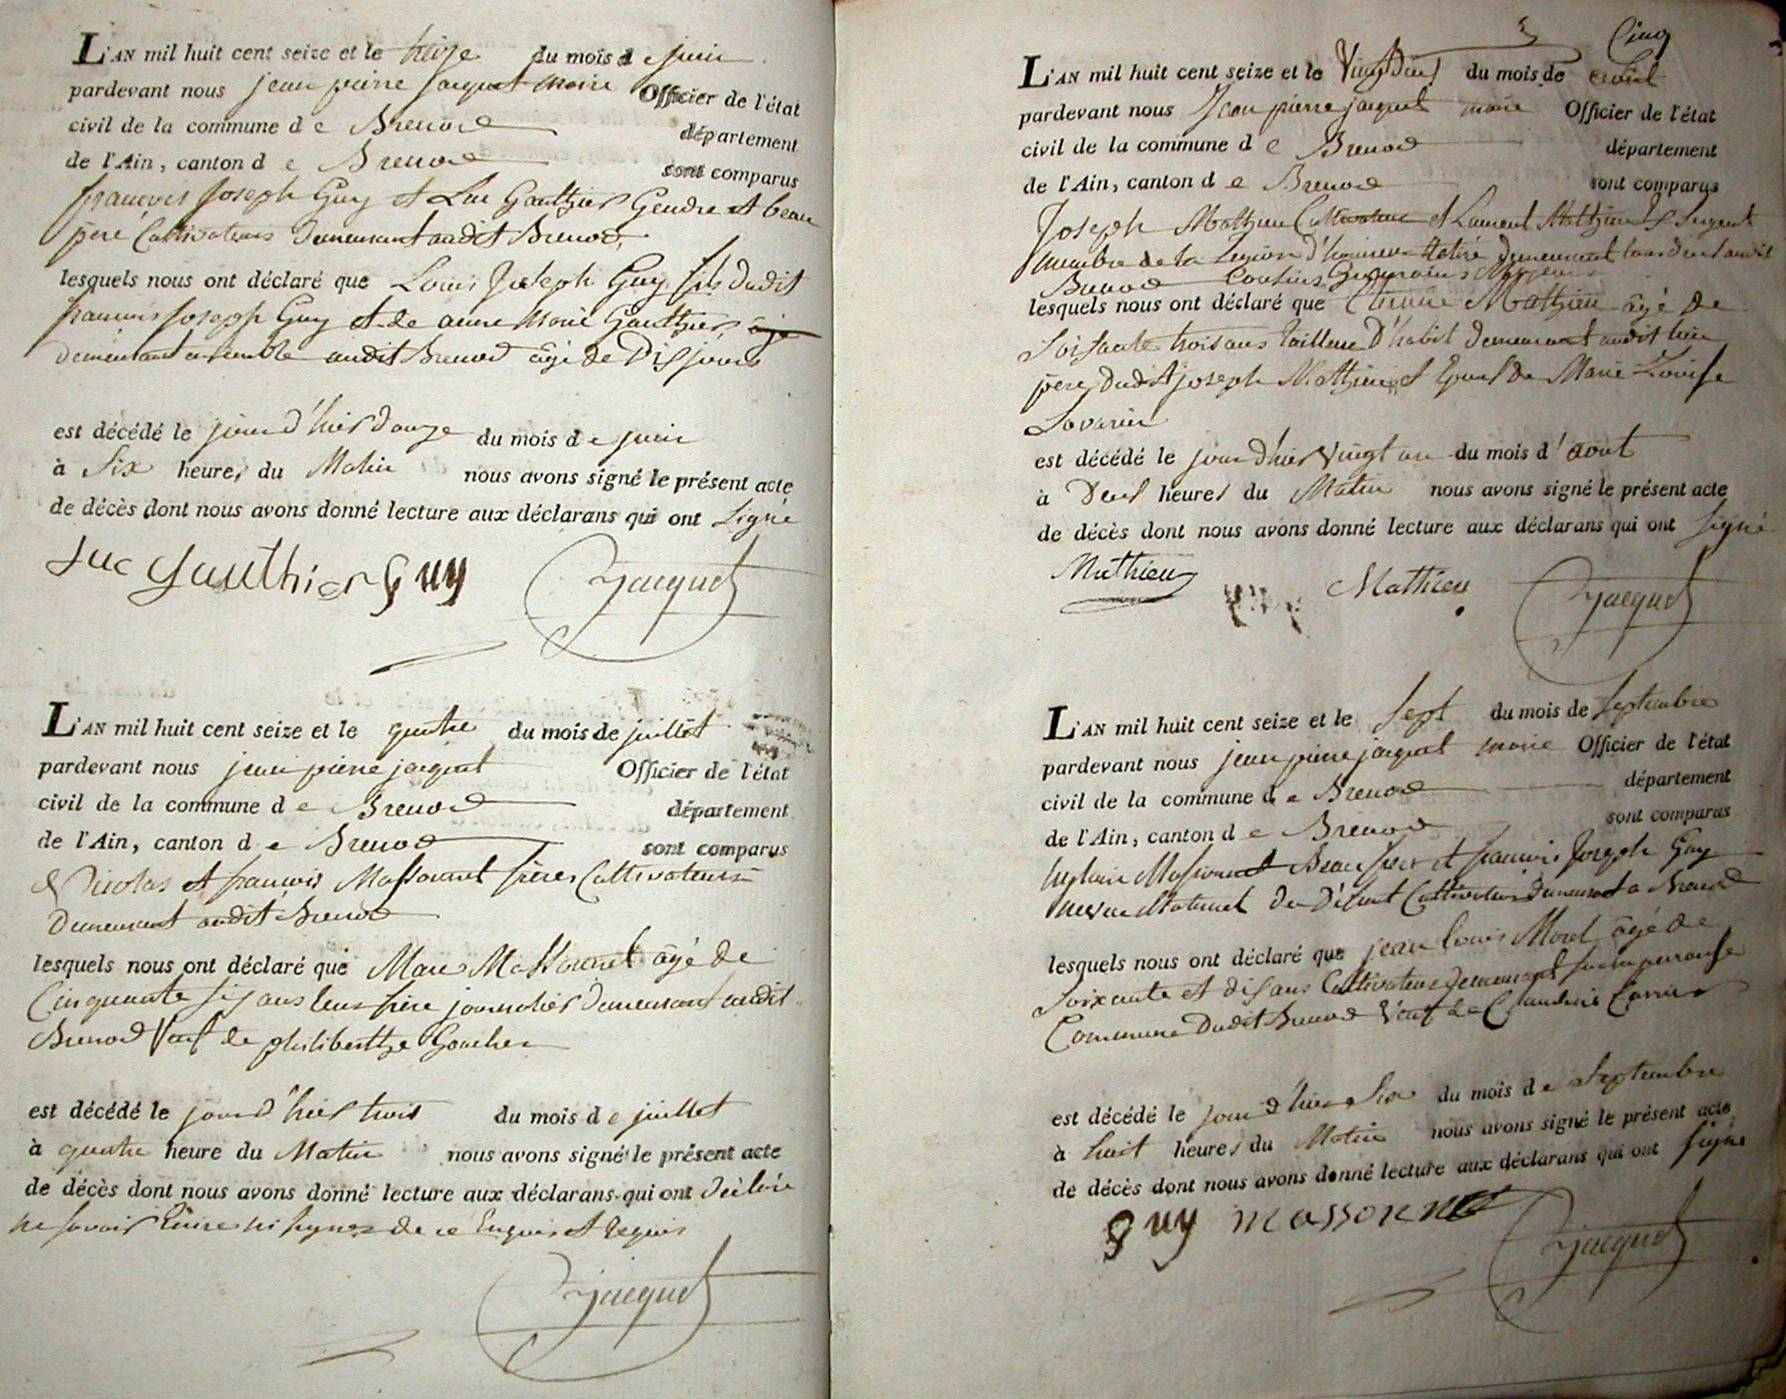 L'AN mil huit cent seize et le treize du mois de juin
pardevant nous jean pierre jacquet maire Officier de l'état
civil de la commune de Brenod département
de l'Ain, canton de Brenod sont comparus
françois Joseph Guy et Luc Gauthier Gendre et beau
pere Cultivateurs demeurant audit Brenod
lesquels nous ont déclaré que Louis Joseph Guy fils dudit
françois Joseph Guy et de anne Marie Gauthier age
demeurant ensemble audit Brenod âgé de Dis jours
est décédé le jour d'hier douze du mois de juin
à Six heures du Matin nous avons signé le présent acte
de décès dont nous avons donné lecture aux déclarans qui ont Signé
Luc Gauthier Guy Jacquet
L'AN mil huit cent seize et le quatre du mois de juillet
pardevant nous jean pierre jacquet Officier de l'état
civil de la commune de Brenod département
de l'Ain, canton de Brenod sont comparus
Nicolas et françois Massonnet frères Cultivateurs
Demeurant audit Brenod
lesquels nous ont déclaré que Marc Massonnet âgé de
Cinquante six ans leur frère journalier Demeurant audit
Brenod Veuf de philiberthe Goucher
est décédé le jour d'hier trois du mois de juillet
à quatre heure du Matin nous avons signé le présent acte
de décès dont nous avons donné lecture aux déclarans qui ont déclaré
ne savoir Ecrire ni signer de ce Enquis et Requis
Jacquet
Cinq
L'AN mil huit cent seize et le Vingt Deux du mois de août
pardevant nous Jean pierre jacquet maire Officier de l'état
civil de la commune de Brenod département
de l'Ain, canton de Brenod sont comparus
Joseph Mathieu Cultivateur et Laurent Mathieu Sergent
membre de la Legion d'honneur Retiré demeurant tous deux audit
Brenod Cousins Germains
lesquels nous ont déclaré que Etienne Mathieu âgé de
Soixante trois ans tailleur D'habit demeurant audit lieu
père Dudit joseph Mathieu et Epoux de Marie Louise
Savarin
est décédé le jour d'hier vingt un du mois d'août
à Deux heures du Matin nous avons signé le présent acte
de décès dont nous avons donné lecture aux déclarans qui ont signé
Mathieu Mathieu Jacquet
L'AN mil huit cent seize et le Sept du mois de Septembre
pardevant nous jean pierre jacquet maire Officier de l'état
civil de la commune de Brenod département
de l'Ain, canton de Brenod sont comparus
Massonnet Beau frere et francois Joseph Guy
neveu Maternel du Défunt Cultivateurs demeurant a Brenod
lesquels nous ont déclaré que jean Louis Morel âgé de
Soixante et dis ans Cultivateur demeurant sur la perouse
Commune Dudit Brenod Veuf de Claudine Carrier
est décédé le jour d'hier Six du mois de Septembre
à huit heures du Matin nous avons signé le présent acte
de décès dont nous avons donné lecture aux déclarans qui ont signé
Guy massonnet Jacquet